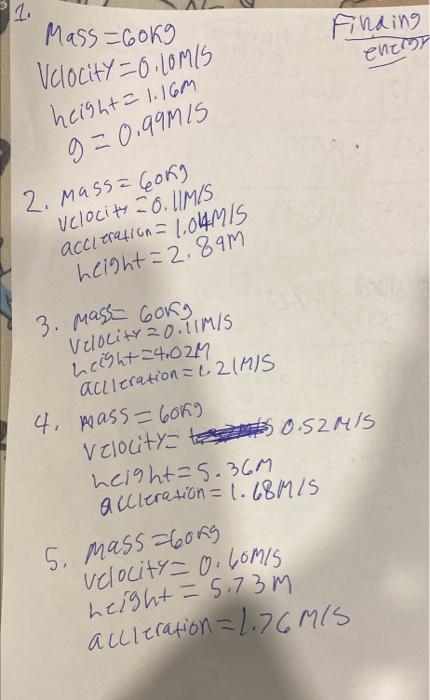 1.
Finding
energy
Mass = 60kg
Velocity = 0.10M/S
height = 1.16M
g = 0.99M/S
2. Mass = 60kg
Velocity = 0.11M/S
accleration = 1.04M/S
height = 2.89M
3. Mass = 60kg
Velocity = 0.11M/S
height = 4.02M
accleration = 1.21M/S
4. Mass = 60kg
Velocity = 0.52M/S
height = 5.36M
accleration = 1.68M/S
5. Mass = 60kg
Velocity = 0.60M/S
height = 5.73M
accleration = 1.76M/S